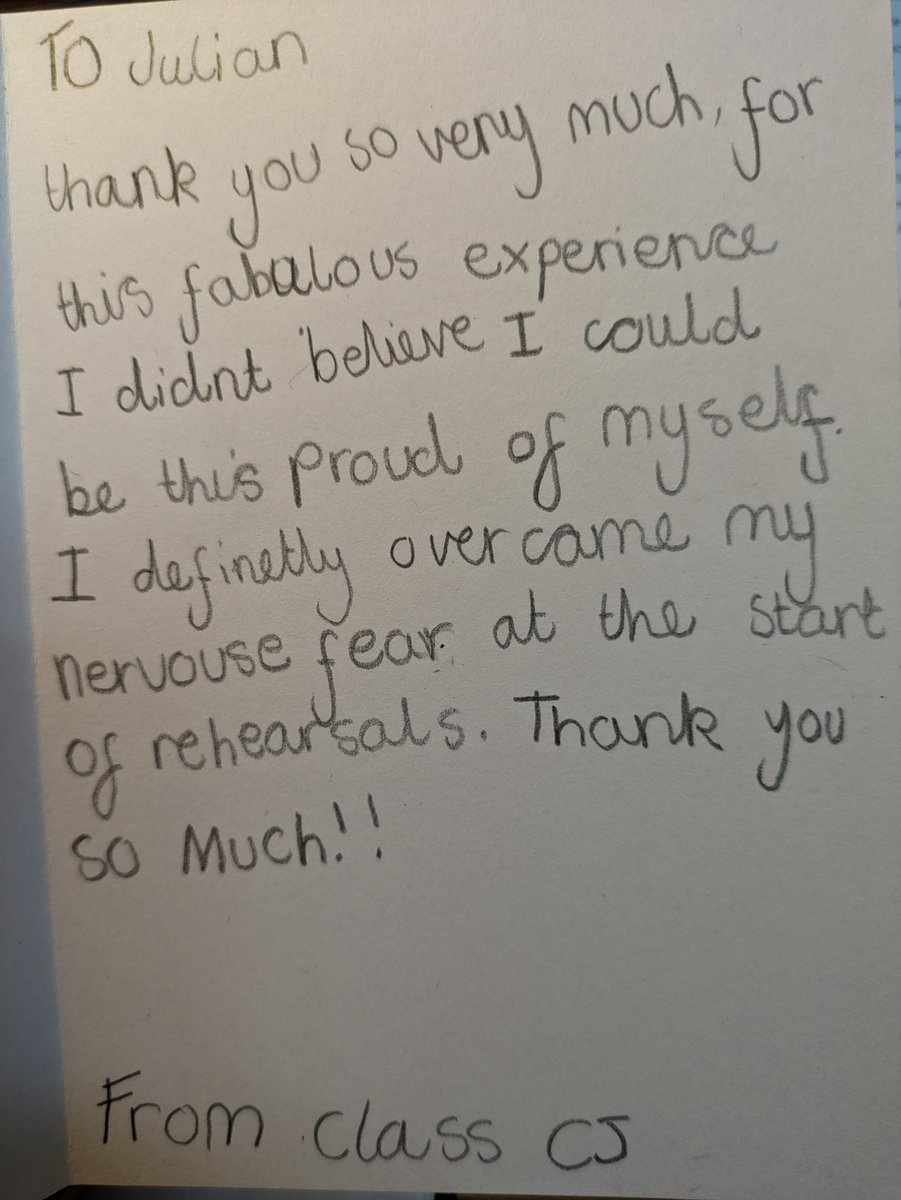 To Julian
thank you so very much, for
this fabulous experience
I didnt believe I could
be this proud of myself.
I definetly overcame my
nervouse fear. at the start
of rehearsals. Thank you
so Much!!
From class CJ